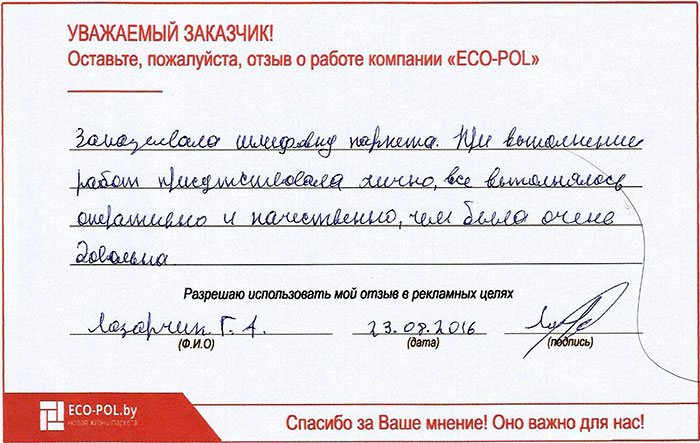 УВАЖАЕМЫЙ ЗАКАЗЧИК!
Оставьте, пожалуйста, отзыв о работе компании «ECO-POL»
Заказывала шлифовку паркета. При выполнение
работ присутствовала лично, все выполнялось
оперативно и качественно, чем была очень
довольна
Разрешаю использовать мой отзыв в рекламных целях
Лазарчик Г. А. 23.08.2016
(Ф.И.О) (дата) (подпись)
ECO-POL.by
НОВАЯ ЖИЗНЬ ПАРКЕТА
Спасибо за Ваше мнение! Оно важно для нас!